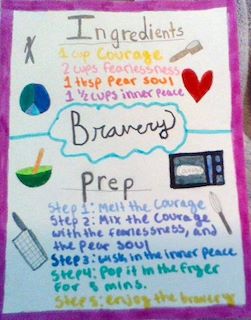 Ingredients
1 cup Courage
2 cups fearlessness
1 tbsp Pear Soul
1 ½ cups inner Peace
Bravery
Prep
Step 1: Melt the Courage
Step 2: Mix the Courage
with the fearlessness, and
the Pear Soul
Step 3: Wisk in the inner Peace
Step 4: Pop it in the fryer
for 5 mins.
Step 5: enjoy the bravery